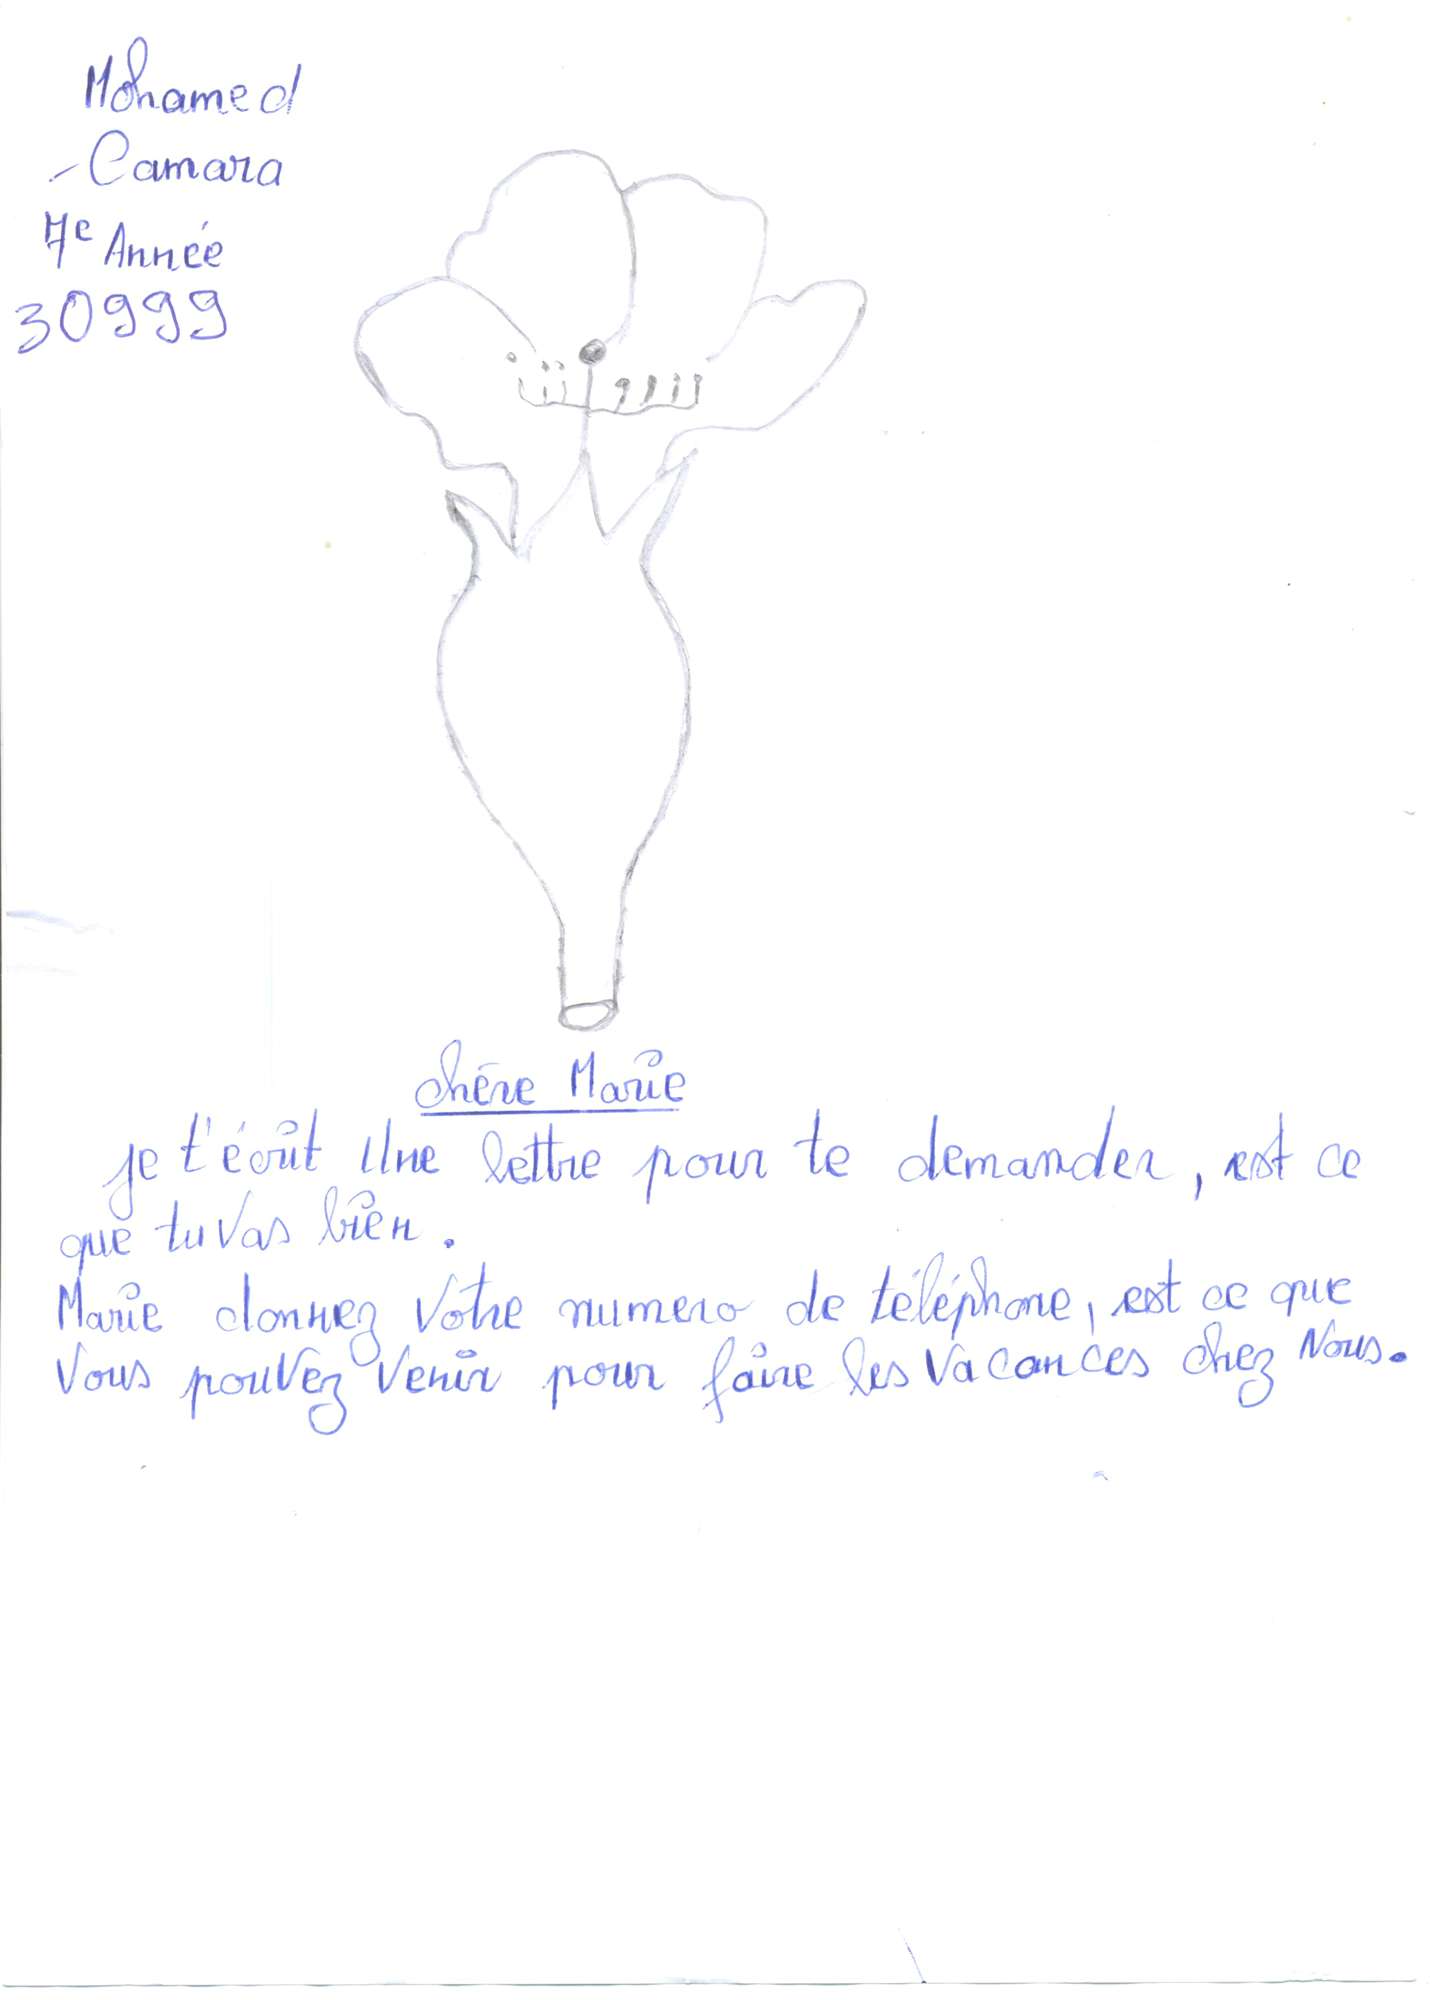 Mohamed
-Camara
7e Année
30999
chère Marie
je t'écrit Une lettre pour te demander, est ce
que tu vas bien.
Marie donnez votre numero de téléphone, est ce que
Vous pouvez venir pour faire les vacances chez Nous.